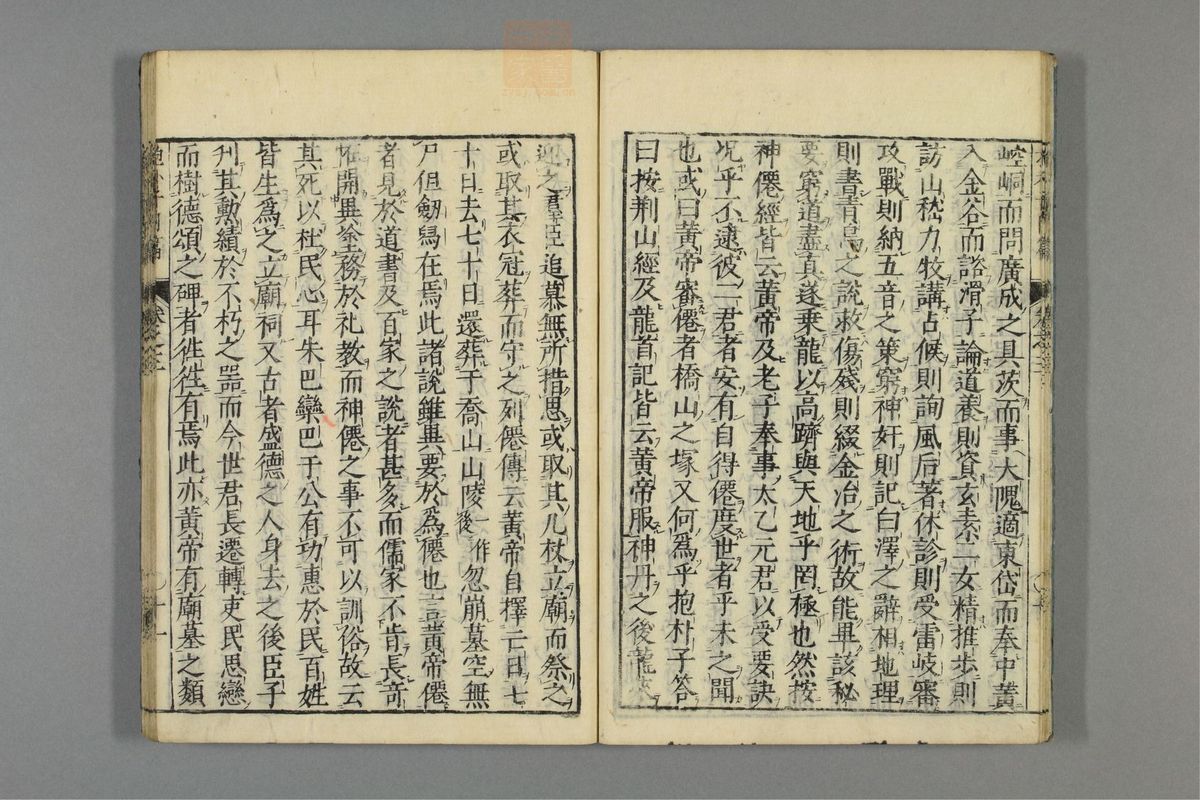 崆峒而問廣成之具茨而事大隗適東岱而奉中黃
入金谷而諮滑子論道養則資玄素二女精推歩則
訪山嵇力牧講占候則詢風后著休診則受雷岐審
攻戰則納五音之策窮神奸則記白澤之辭相地理
則書青烏之說救傷殘則綴金冶之術故能畢該秘
要窮道盡真遂乗龍以高躋與天地乎罔極也然按
神僊經皆云黃帝及老子奉事太乙元君以受要訣
况乎不逮彼二君者安有自得僊度世者乎未之聞
也或曰黃帝審僊者橋山之塚又何爲乎抱朴子答
曰按荆山經及龍首記皆云黃帝服神丹之後龍來
迎之羣臣追慕無所措思或取其几杖立廟而祭之
或取其衣冠葬而守之列僊傳云黃帝自擇亡日七
十日去七十日還葬于喬山山陵一作後忽崩墓空無
尸但劒舄在焉此諸說雖異要於爲僊也言黃帝僊
者見於道書及百家之說者甚多而儒家不肯長竒
怪開異塗務於礼教而神僊之事不可以訓俗故云
其死以杜民心耳朱巴欒巴于公有功惠於民百姓
皆生爲之立廟祠又古者盛德之人身去之後臣子
刋其勲績於不朽之噐而今世君長遷轉吏民思戀
而樹德頌之碑者徃徃有焉此亦黃帝有廟墓之類